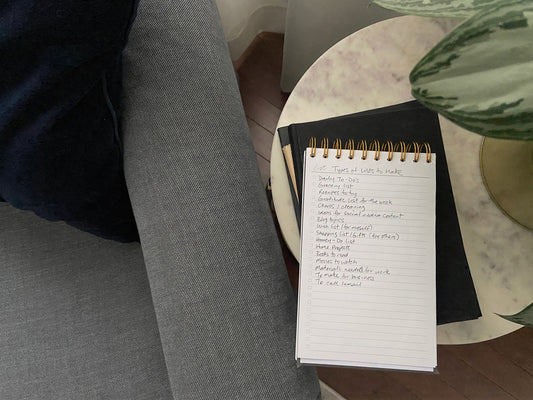 Types of Lists to Make
Daily To-Do's
Grocery list
Recipes to try
Gratitude List for the week
Chores / cleaning
Ideas for social media content
Blog topics
Wish list (for myself)
Shopping list/Gifts (for others)
Honey-Do list
Home Projects
Books to read
Movies to watch
Materials needed for work
To make for business
To call/email